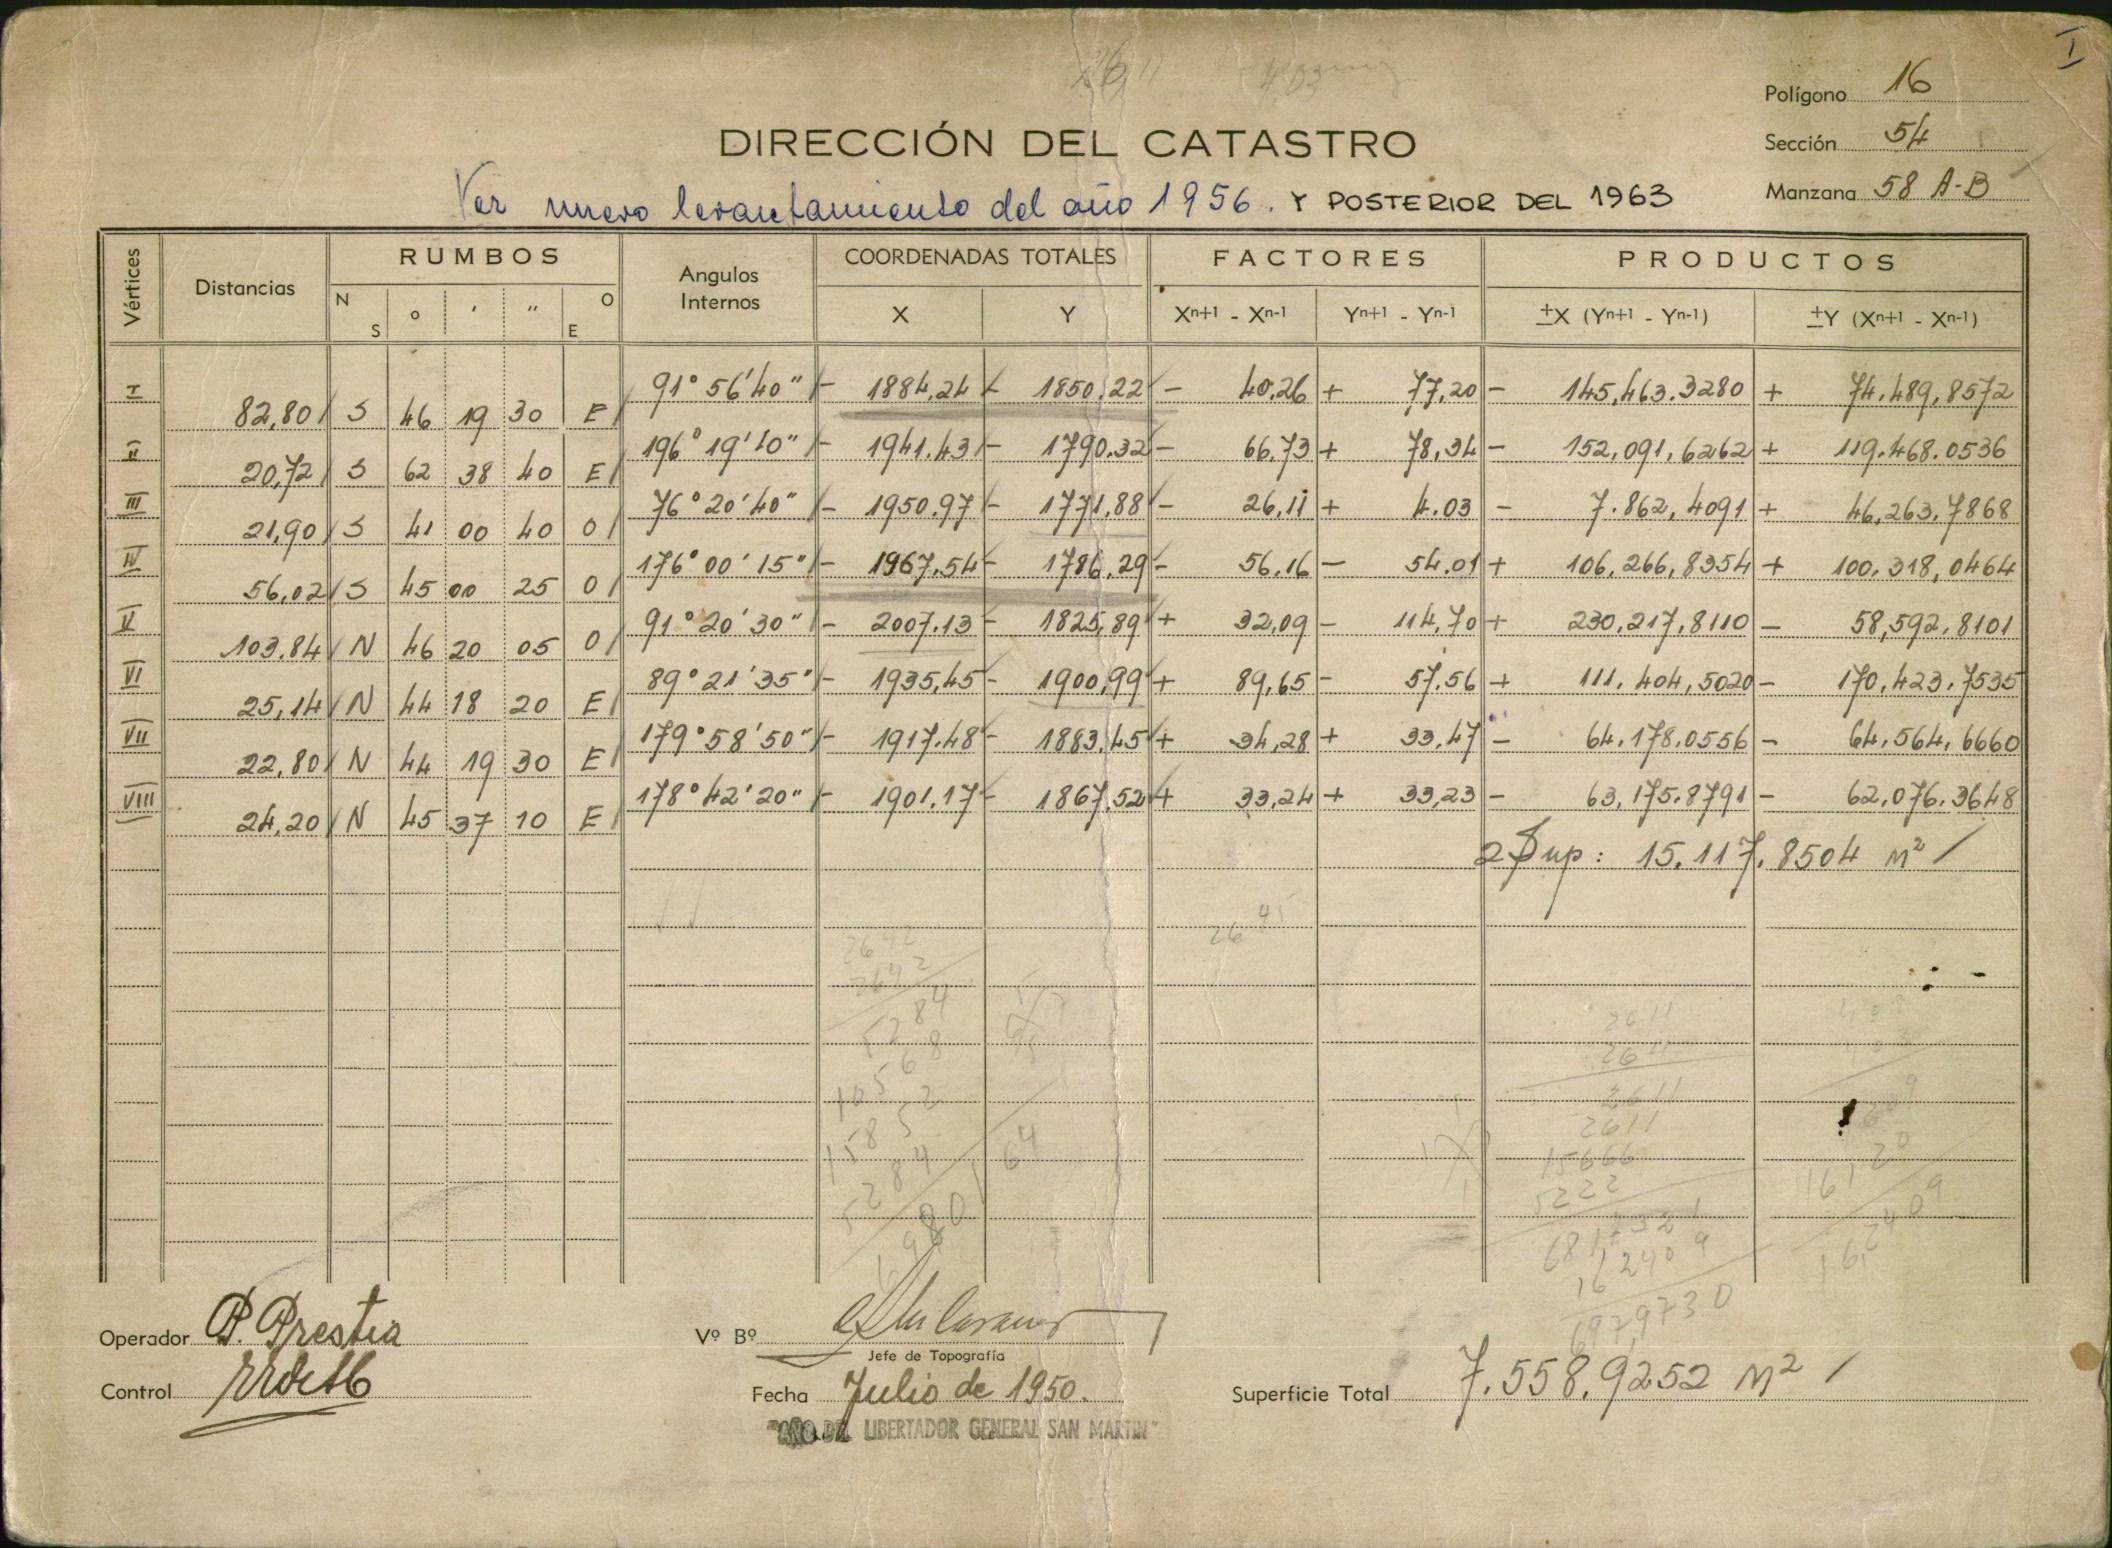 I
Polígono 16
DIRECCIÓN DEL CATASTRO
Sección 54
Manzana 58 A-B
Ver nuevo levantamiento del año 1956. Y POSTERIOR DEL 1963
Vértices Distancias RUMBOS Angulos Internos COORDENADAS TOTALES FACTORES PRODUCTOS
N S ° ' " O E X Y Xn+1 - Xn-1 Yn+1 - Yn-1 ±X (Yn+1 - Yn-1) ±Y (Xn+1 - Xn-1)
I 91° 56' 40" - 1884,24 - 1850,22 - 40,26 + 77,20 - 145,463.3280 + 74.489,8572
82,80 S 46 19 30 E
II 196° 19' 10" - 1941.43 - 1790.32 - 66.73 + 78,34 - 152,091,6262 + 119.468.0536
20,72 S 62 38 40 E
III 76° 20' 40" - 1950.97 - 1771,88 - 26,11 + 4.03 - 7.862,4091 + 46,263,7868
21,90 S 41 00 40 O
IV 176° 00' 15" - 1967.54 - 1786,29 - 56.16 - 54.01 + 106,266,8354 + 100.318,0464
56,02 S 45 00 25 O
V 91° 20' 30" - 2007.13 - 1825,89 + 32,09 - 114,70 + 230,217,8110 - 58,592.8101
103.84 N 46 20 05 O
VI 89° 21' 35" - 1935,45 - 1900,99 + 89,65 - 57.56 + 111.404,5020 - 170,423.7535
25,14 N 44 18 20 E
VII 179° 58' 50" - 1917.48 - 1883,45 + 34,28 + 33.47 - 64,178.0556 - 64,564,6660
22,80 N 44 19 30 E
VIII 178° 42' 20" - 1901.17 - 1867,52 + 33,24 + 33,23 - 63,175.8791 - 62,076.3648
24,20 N 45 37 10 E
2 Sup: 15.117.8504 M²
26 45
2642
2642
5284
10568
15852
5284
64
2611
2611
2611
2611
15666
5222
162409
6979730
Operador P. Prestia
Vº Bº
Jefe de Topografía
Control
Fecha Julio de 1950.
Superficie Total 7.558.9252 M²
"AÑO DEL LIBERTADOR GENERAL SAN MARTIN"